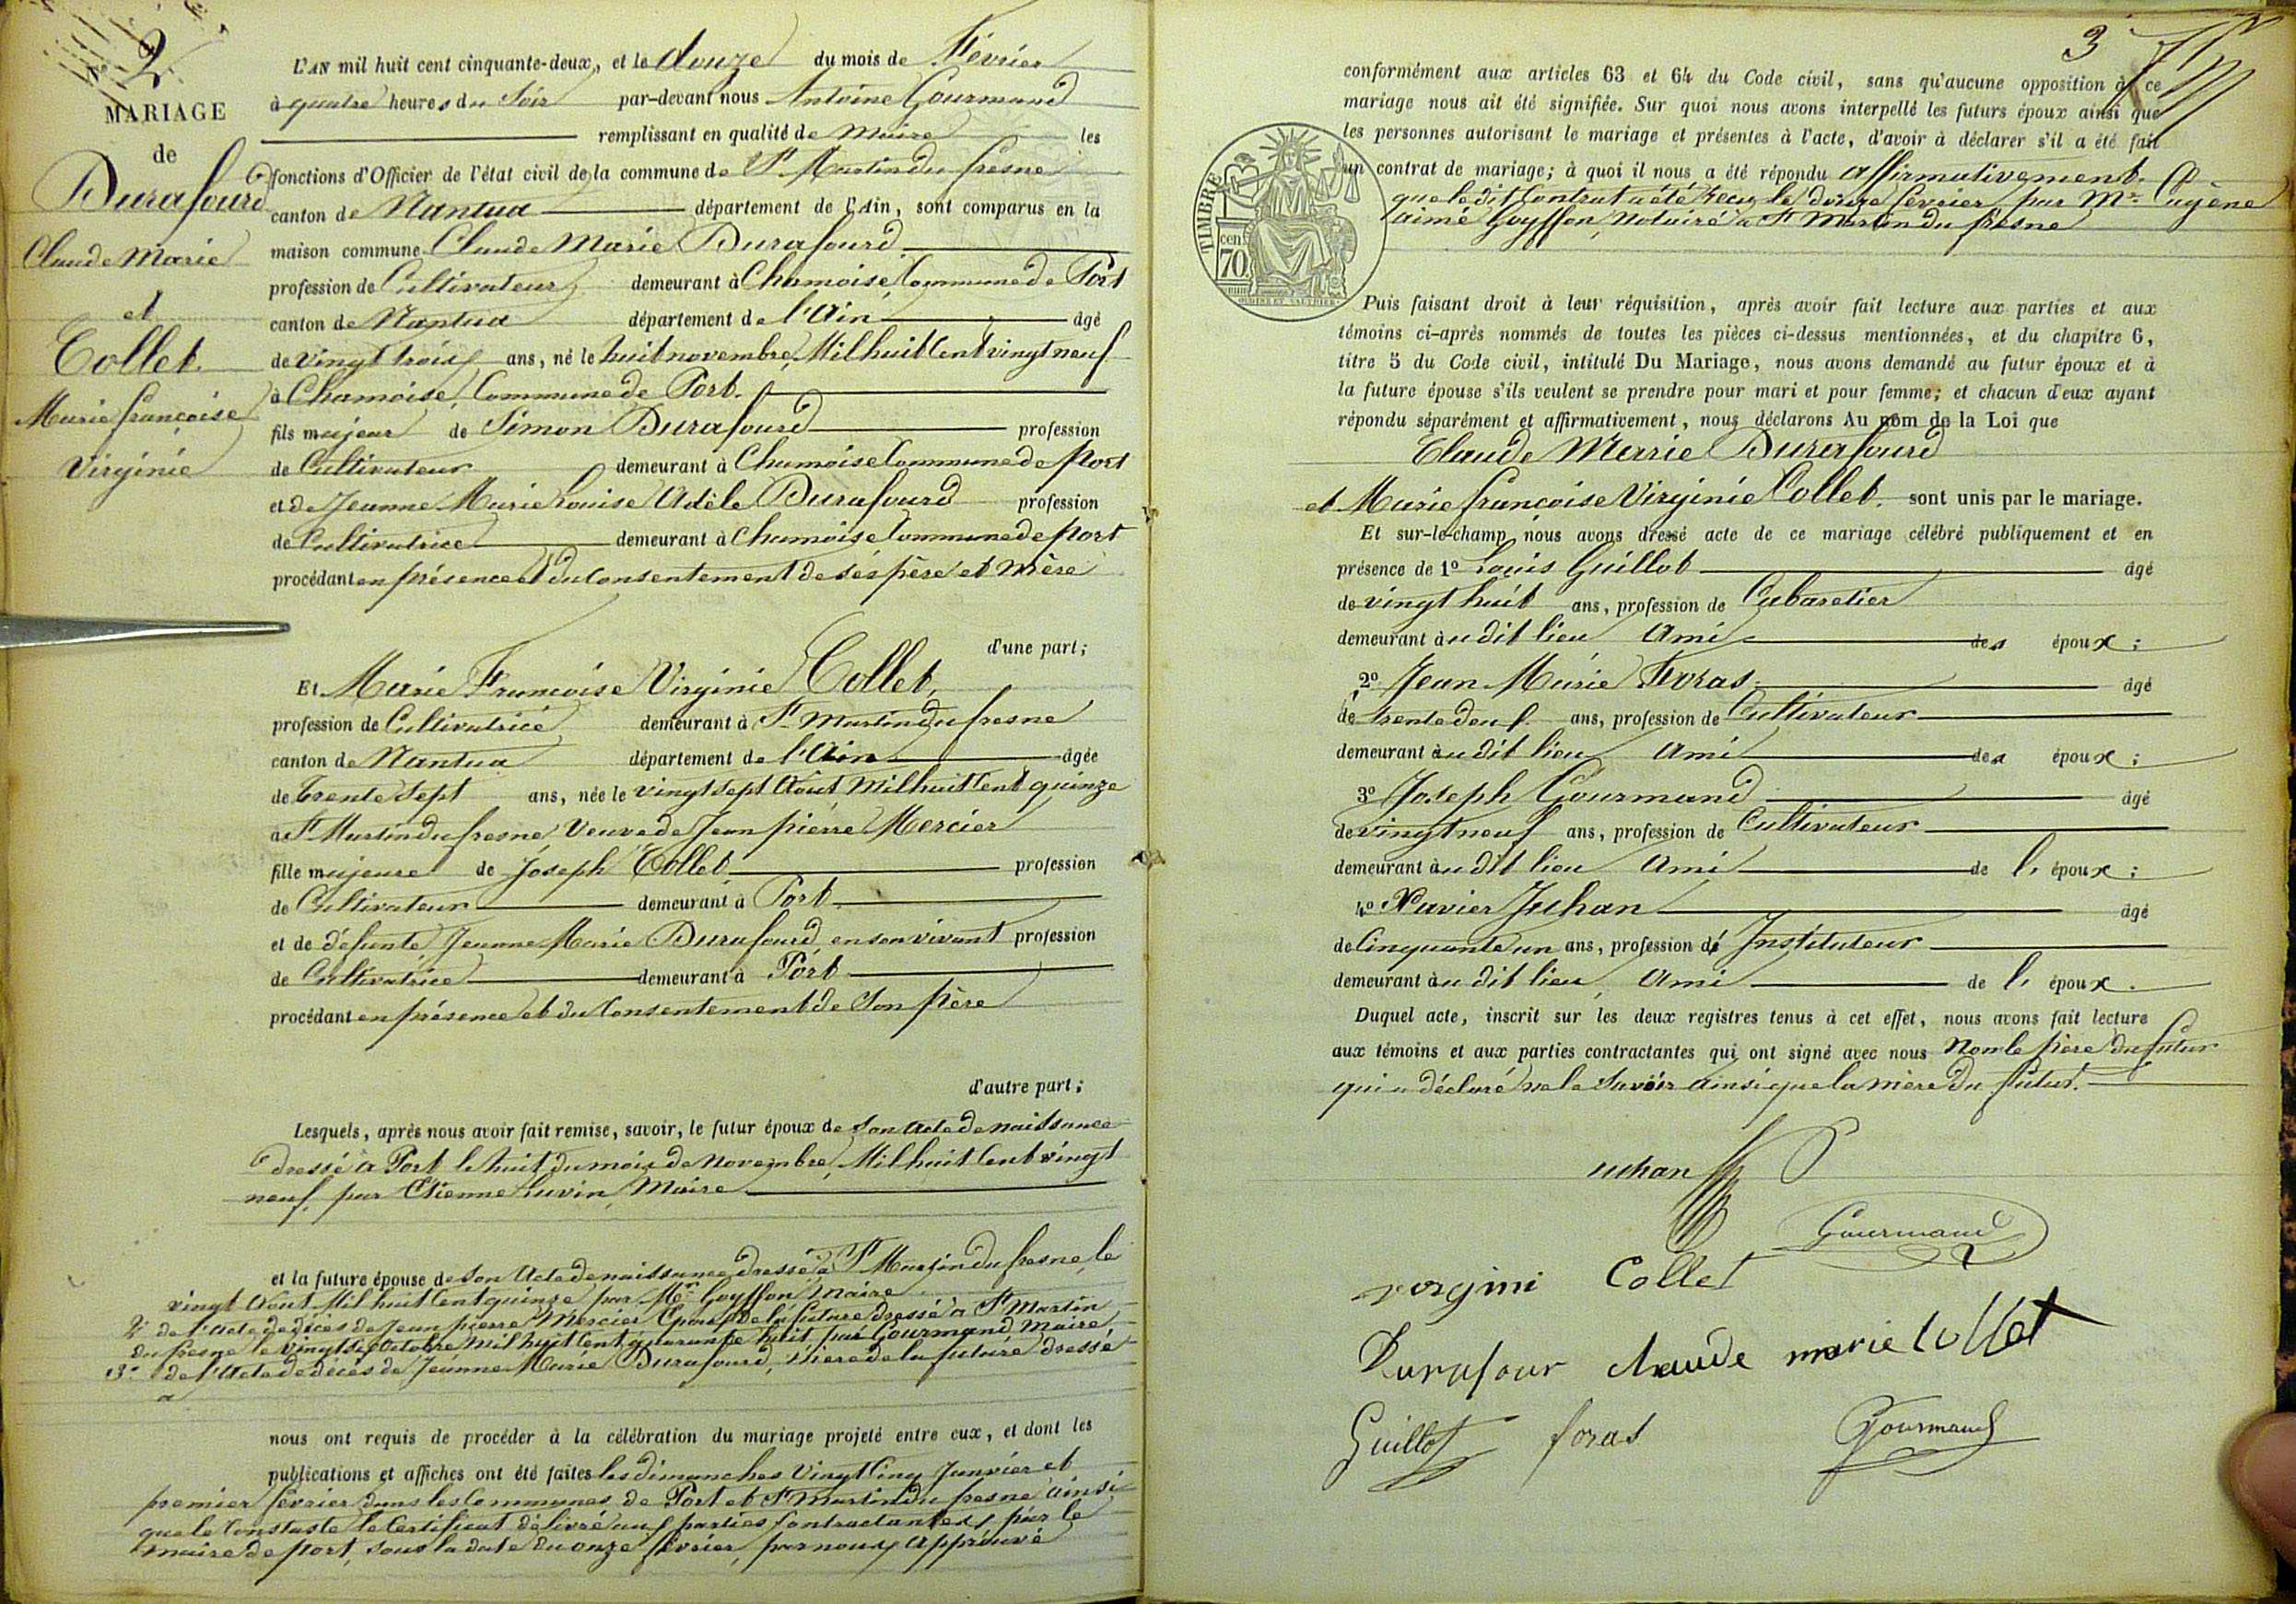 2
MARIAGE
de
Durafourd
Claude Marie
et
Collet
Marie françoise
Virginie
L'AN mil huit cent cinquante-deux, et le douze du mois de Février
à quatre heures du Soir par-devant nous Antoine Gourmand
remplissant en qualité de Maire les
fonctions d'Officier de l'état civil de la commune de St Martin du fresne
canton de Nantua département de l'Ain, sont comparus en la
maison commune Claude Marie Durafourd
profession de Cultivateur demeurant à Chamoise Commune de Port
canton de Nantua département de l'Ain âgé
de vingt trois ans, né le huit novembre Mil huit Cent vingt neuf
à Chamoise, Commune de Port.
fils majeur de Simon Durafourd profession
de Cultivateur demeurant à Chamoise Commune de Port
et de Jeanne Marie Louise Adèle Durafourd profession
de Cultivatrice demeurant à Chamoise Commune de port
procédant en présence et du Consentement de ses père et Mère
d'une part;
Et Marie Françoise Virginie Collet,
profession de Cultivatrice demeurant à St Martin du fresne
canton de Nantua département de l'Ain âgée
de Trente Sept ans, née le vingt sept Aout Mil huit Cent quinze
à St Martin du fresne, Veuve de Jean pierre Mercier
fille majeure de Joseph Collet profession
de Cultivateur demeurant à Port
et de défunte Jeanne Marie Durafourd en son vivant profession
de Cultivatrice demeurant à Port
procédant en présence et du Consentement de Son Père
d'autre part;
Lesquels, après nous avoir fait remise, savoir, le futur époux de son Acte de naissance
dressé à Port le huit du mois de Novembre Mil huit Cent vingt
neuf, par Etienne Luvin, Maire
et la future épouse de son Acte de naissance dressé à St Martin du fresne, le
vingt Aout Mil huit Cent quinze par Mr Goyffon Maire
2° de l'Acte de décès de Jean pierre Mercier Epoux de la future dressé à St Martin
du fresne le vingt six Octobre Mil huit Cent quarante huit par Gourmand, Maire,
3° de l'Acte de décès de Jeanne Marie Durafourd, Mère de la future dressé
a
nous ont requis de procéder à la célébration du mariage projeté entre eux, et dont les
publications et affiches ont été faites les dimanches Vingt Cinq Janvier et
premier février dans les Communes de Port et St Martin du fresne ainsi
que le Constaste le Certificat délivré aux parties Contractantes, par le
maire de port, sous la date du onze février, par nous Approuvé
3
conformément aux articles 63 et 64 du Code civil, sans qu'aucune opposition à ce
mariage nous ait été signifiée. Sur quoi nous avons interpellé les futurs époux ainsi que
les personnes autorisant le mariage et présentes à l'acte, d'avoir à déclarer s'il a été fait
un contrat de mariage; à quoi il nous a été répondu affirmativement.
que le dit Contrat a été reçu le douze février par Mr Eugène
aimé Goyffon, Notaire à St Martin du fresne
TIMBRE
cen.
70.
Puis faisant droit à leur réquisition, après avoir fait lecture aux parties et aux
témoins ci-après nommés de toutes les pièces ci-dessus mentionnées, et du chapitre 6,
titre 5 du Code civil, intitulé Du Mariage, nous avons demandé au futur époux et à
la future épouse s'ils veulent se prendre pour mari et pour femme; et chacun d'eux ayant
répondu séparément et affirmativement, nous déclarons Au nom de la Loi que
Claude Marie Durafourd
et Marie françoise Virginie Collet. sont unis par le mariage.
Et sur-le-champ nous avons dressé acte de ce mariage célébré publiquement et en
présence de 1° Louis Guillot âgé
de vingt huit ans, profession de Cabaretier
demeurant àu dit lieu Ami des époux;
2° Jean Marie Foras âgé
de trente deux ans, profession de Cultivateur
demeurant àu dit lieu Ami des époux;
3° Joseph Gourmand âgé
de vingt neuf ans, profession de Cultivateur
demeurant àu dit lieu Ami de l' époux;
4° Xavier Juhan âgé
de Cinquante un ans, profession de Instituteur
demeurant àu dit lieu, Ami de l' époux.
Duquel acte, inscrit sur les deux registres tenus à cet effet, nous avons fait lecture
aux témoins et aux parties contractantes qui ont signé avec nous Non le père du futur
qui a déclaré ne le Savoir ainsi que la mère du futur.
Juhan
Gourmand
vergini Collet
Durafour claude marie Collet
Guillot foras Gourmand